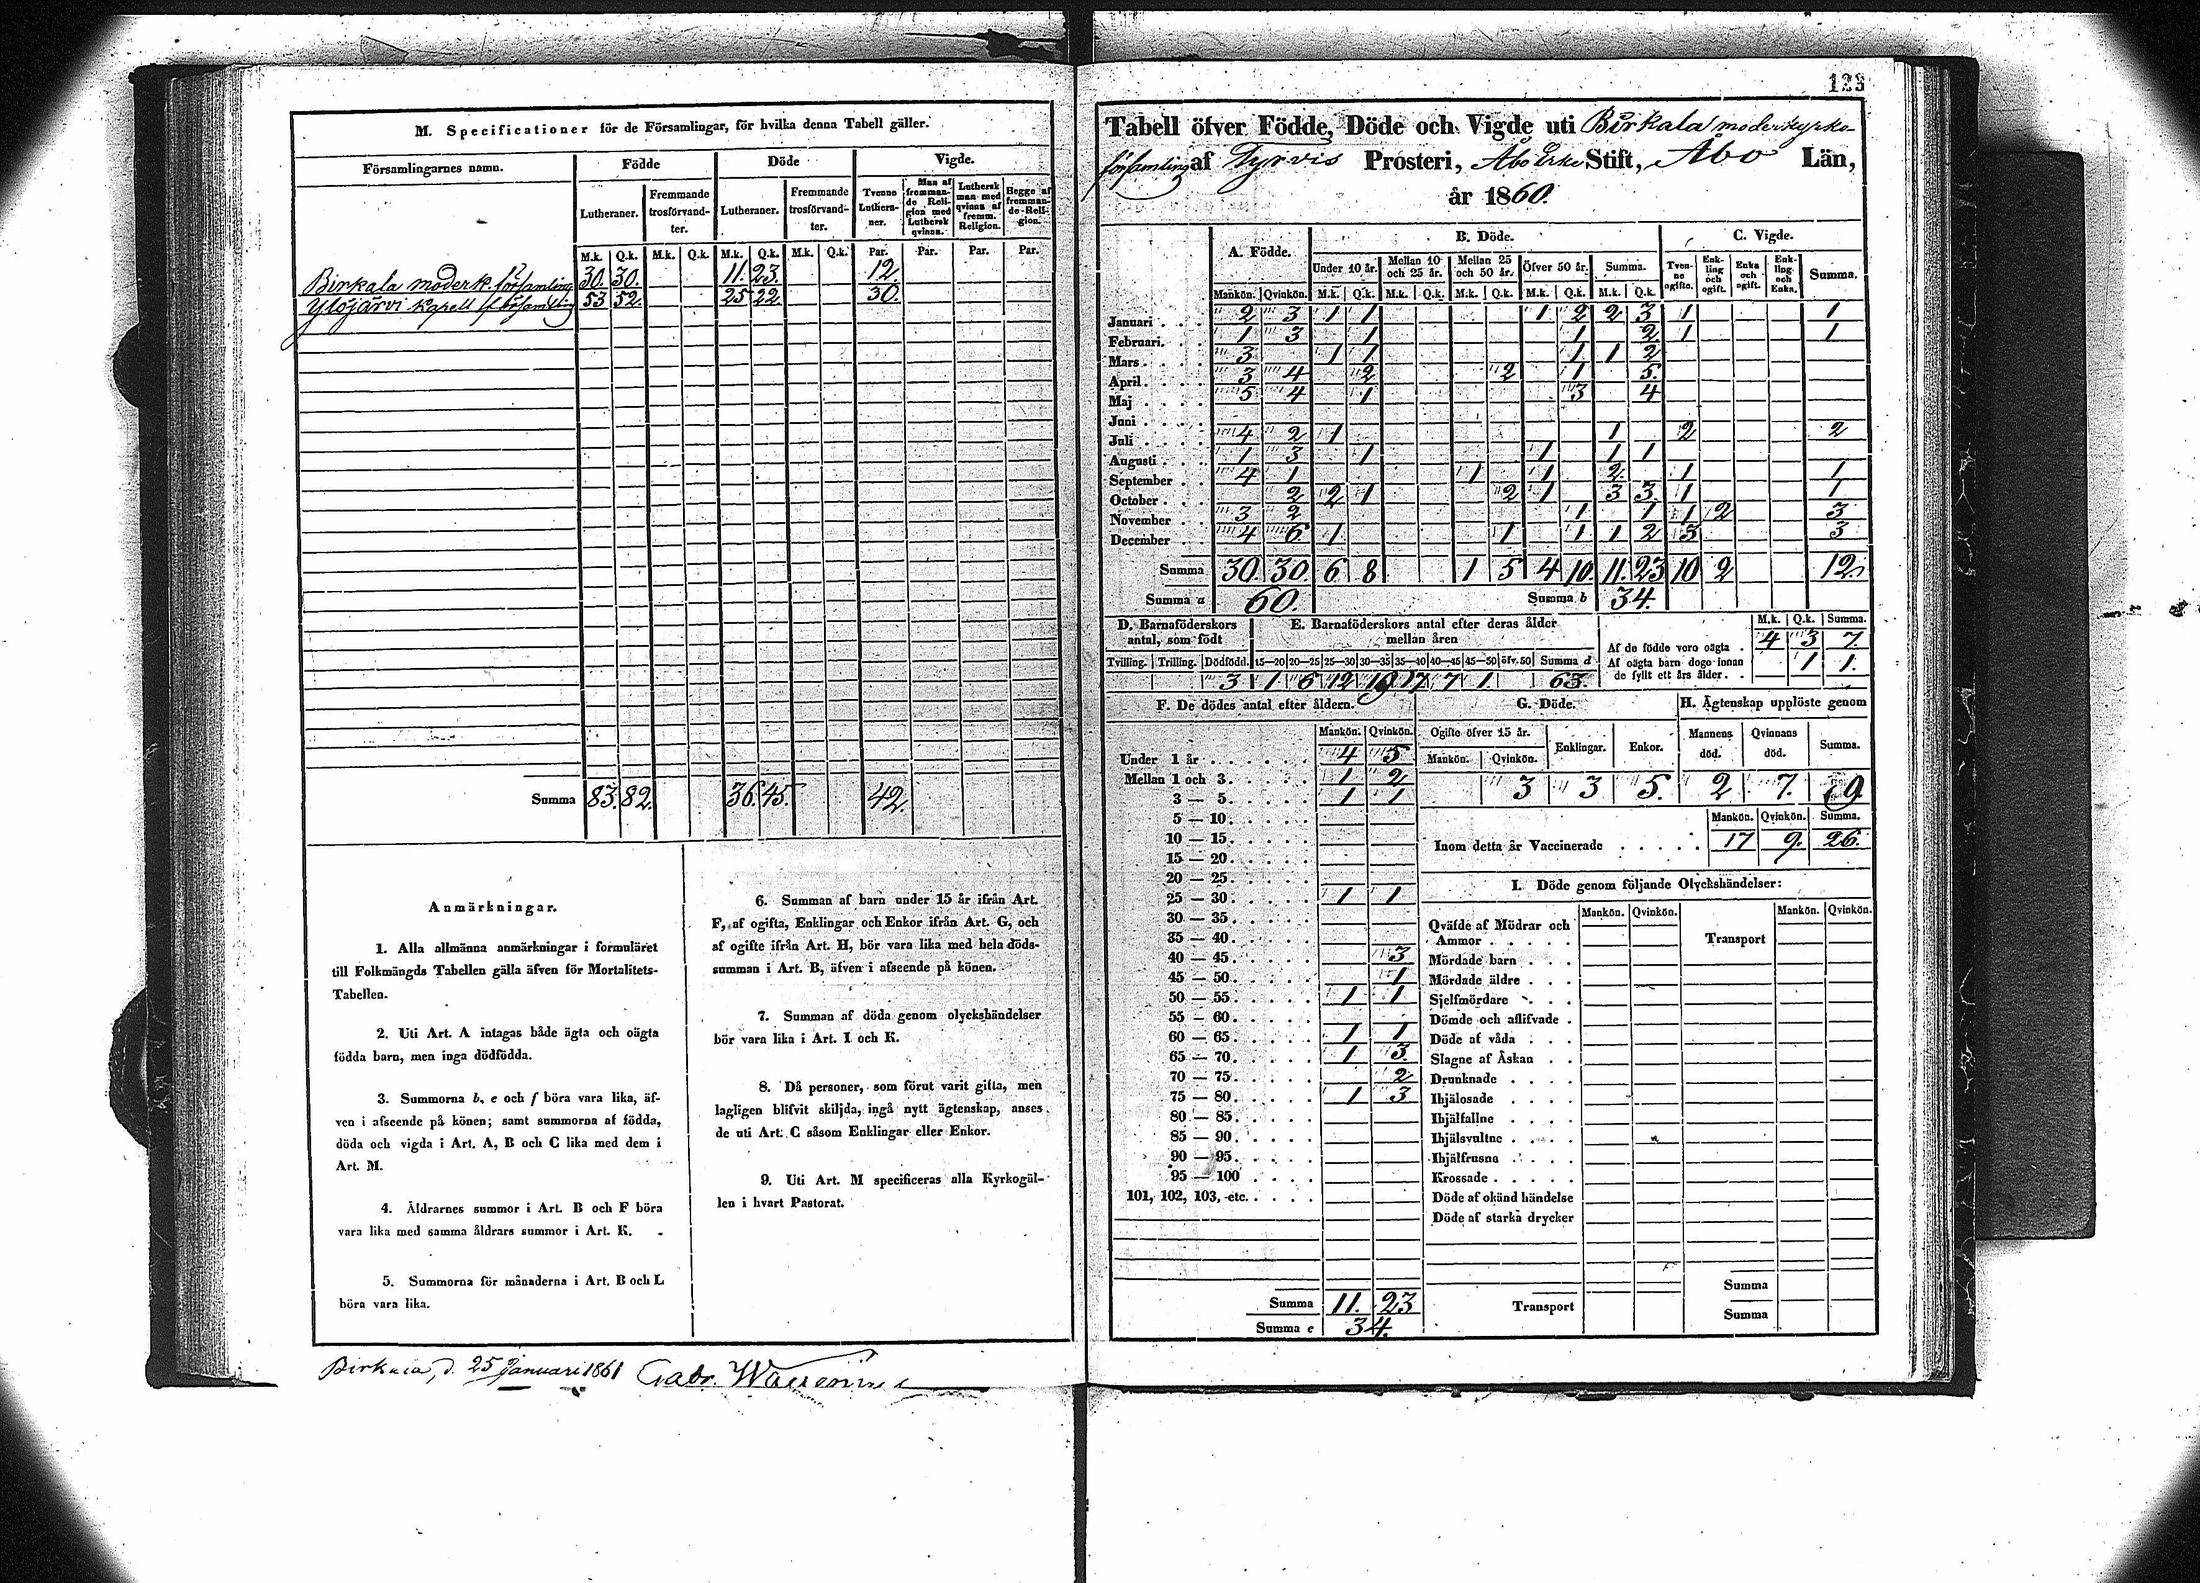 M. Specificationer för de Församlingar, för hvilka denna Tabell gäller.
Församlingarnes namn. Födde Döde Vigde.
Lutheraner. Fremmande trosförvandter. Lutheraner. Fremmande trosförvandter. Tvenne Lutheraner. Man af fremmande Religion med Luthersk qvinna. Luthersk man med qvinna af fremm. Religion. Begge af fremmande Religion.
M.k. Q.k. M.k. Q.k. M.k. Q.k. M.k. Q.k. Par. Par. Par. Par.
Birkala moderk. församling 30. 30. 11. 23. 12.
Ylöjärvi Kapell församling 53 52. 25 22. 30.
Summa 83. 82. 36. 45. 42.
Anmärkningar.
1. Alla allmänna anmärkningar i formuläret
till Folkmängds Tabellen gälla äfven för Mortalitets-
Tabellen.
2. Uti Art. A intagas både ägta och oägta
födda barn, men inga dödfödda.
3. Summorna b, e och f böra vara lika, äf-
ven i afseende på könen; samt summorna af födda,
döda och vigda i Art. A, B och C lika med dem i
Art. M.
4. Åldrarnes summor i Art. B och F böra
vara lika med samma åldrars summor i Art. K.
5. Summorna för månaderna i Art. B och L
böra vara lika.
6. Summan af barn under 15 år ifrån Art.
F, af ogifta, Enklingar och Enkor ifrån Art. G, och
af ogifte ifrån Art. H, bör vara lika med hela döds-
summan i Art. B, äfven i afseende på könen.
7. Summan af döda genom olyckshändelser
bör vara lika i Art. I och K.
8. Då personer, som förut varit gifta, men
lagligen blifvit skiljda, ingå nytt ägtenskap, anses
de uti Art. C såsom Enklingar eller Enkor.
9. Uti Art. M specificeras alla Kyrkogäl-
len i hvart Pastorat.
Birkala, d. 25 Januari 1861
123
Tabell öfver Födde, Döde och Vigde uti Birkala moderkyrko-
församling af Tyrvis Prosteri, Åbo Erke Stift, Åbo Län,
år 1860.
A. Födde. B. Döde. C. Vigde.
Under 10 år. Mellan 10 och 25 år. Mellan 25 och 50 år. Öfver 50 år. Summa. Tvenne ogifte. Enkling och ogift. Enka och ogift. Enkling och Enka. Summa.
Mankön. Qvinkön. M.k. Q.k. M.k. Q.k. M.k. Q.k. M.k. Q.k. M.k. Q.k.
Januari 2 3 1 1 1 2 2 3 1 1
Februari. 1 3 1 1 2 1 1
Mars 3 1 1 1 1 2
April 3 4 2 2 1 5.
Maj 5 4 1 3 4
Juni
Juli 4 2 1 1 2 2
Augusti 1 3 1 1 1 1
September 4 1 1 1 2. 1 1
October 2 2 1 2 1 3 3. 1 1
November 3 2 1 1 1 2 3
December 4 6 1 1 1 1 2 3 3
Summa 30. 30. 6 8 1 5 4 10. 11. 23 10 2 12.
Summa a 60. Summa b 34.
D. Barnaföderskors antal, som födt
E. Barnaföderskors antal efter deras ålder mellan åren
M.k. Q.k. Summa.
Af de födde voro oägta 4 3 7.
Af oägta barn dogo innan de fyllt ett års ålder. 1 1.
Tvilling. Trilling. Dödfödd. 15—20 20—25 25—30 30—35 35—40 40—45 45—50 öfv. 50 Summa d
3 1 6 12 19 17 7 1. 63.
F. De dödes antal efter åldern. G. Döde. H. Ägtenskap upplöste genom
Mankön. Qvinkön. Ogifte öfver 15 år. Enklingar. Enkor. Mannens död. Qvinnans död. Summa.
Mankön. Qvinkön.
3 3 5. 2 7. 9.
Under 1 år 4 5
Mellan 1 och 3. 1 2
3 — 5. 1 1
5 — 10.
10 — 15.
15 — 20.
20 — 25.
25 — 30. 1 1
30 — 35.
35 — 40.
40 — 45. 3
45 — 50. 1
50 — 55. 1 1
55 — 60.
60 — 65. 1 1
65 — 70. 1 3.
70 — 75. 2
75 — 80. 1 3
80 — 85.
85 — 90.
90 — 95.
95 — 100
101, 102, 103, etc.
Summa 11. 23
Summa e 34.
Mankön. Qvinkön. Summa.
Inom detta år Vaccinerade 17 9. 26.
I. Döde genom följande Olyckshändelser:
Mankön. Qvinkön. Mankön. Qvinkön.
Qväfde af Mödrar och Ammor Transport
Mördade barn
Mördade äldre
Sjelfmördare
Dömde och aflifvade
Döde af våda
Slagne af Åskan
Drunknade
Ihjälosade
Ihjälfallne
Ihjälsvultne
Ihjälfrusna
Krossade
Döde af okänd händelse
Döde af starka drycker
Summa
Transport Summa